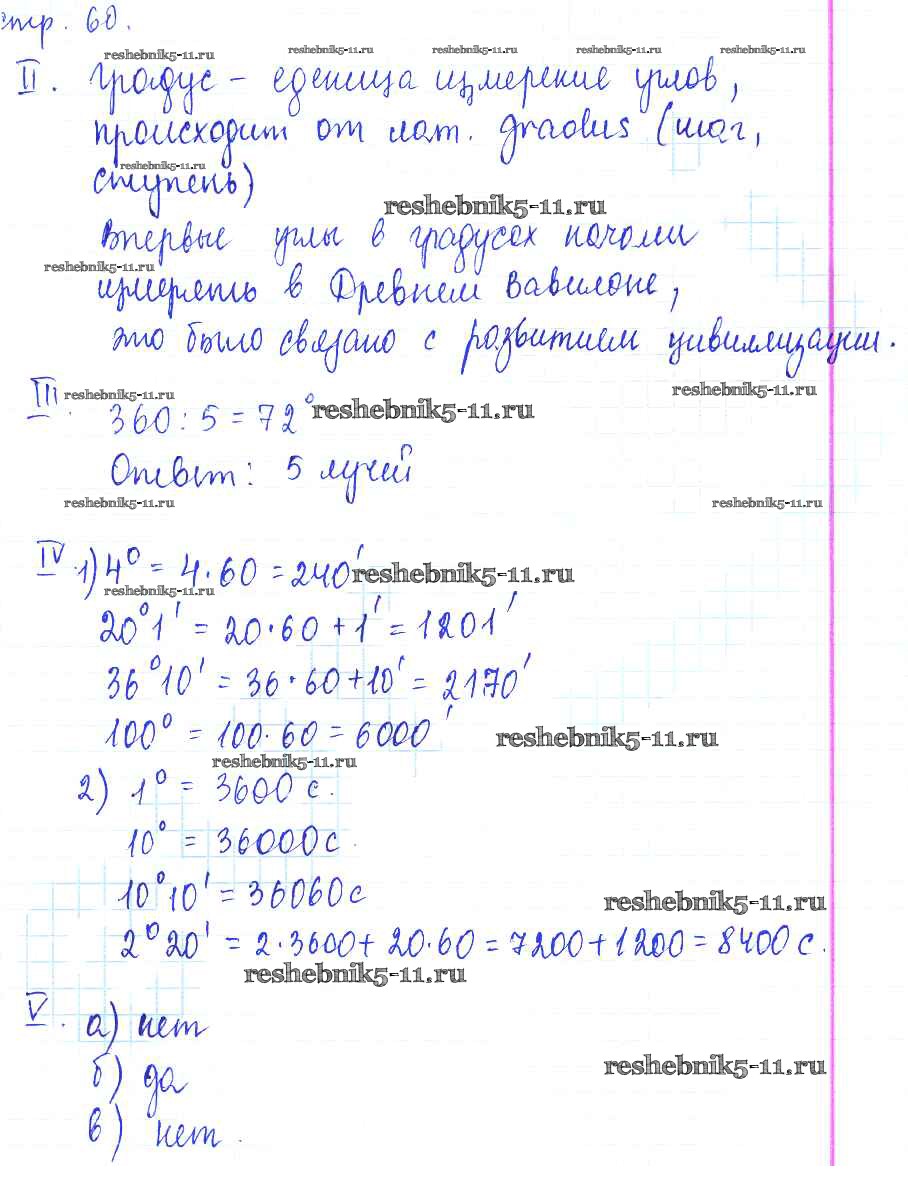 стр. 60.
reshebnik5-11.ru reshebnik5-11.ru reshebnik5-11.ru reshebnik5-11.ru
II. Градус – еденица измерение углов,
происходит от лат. gradus (шаг,
reshebnik5-11.ru
ступень)
reshebnik5-11.ru
Впервые углы в градусах начали
reshebnik5-11.ru
измерять в Древнем Вавилоне,
это было связано с развитием цивиллизации.
III. reshebnik5-11.ru reshebnik5-11.ru
360 : 5 = 72° reshebnik5-11.ru
Ответ: 5 лучей
reshebnik5-11.ru reshebnik5-11.ru
IV. 1) 4° = 4·60 = 240' reshebnik5-11.ru
reshebnik5-11.ru
20°1' = 20·60 + 1' = 1201'
36°10' = 36·60 + 10' = 2170'
100° = 100·60 = 6000' reshebnik5-11.ru
reshebnik5-11.ru
2) 1° = 3600 с.
10° = 36000с.
10°10' = 36060с reshebnik5-11.ru
2°20' = 2·3600 + 20·60 = 7200 + 1200 = 8400 с.
reshebnik5-11.ru
V. а) нет
б) да reshebnik5-11.ru
в) нет.